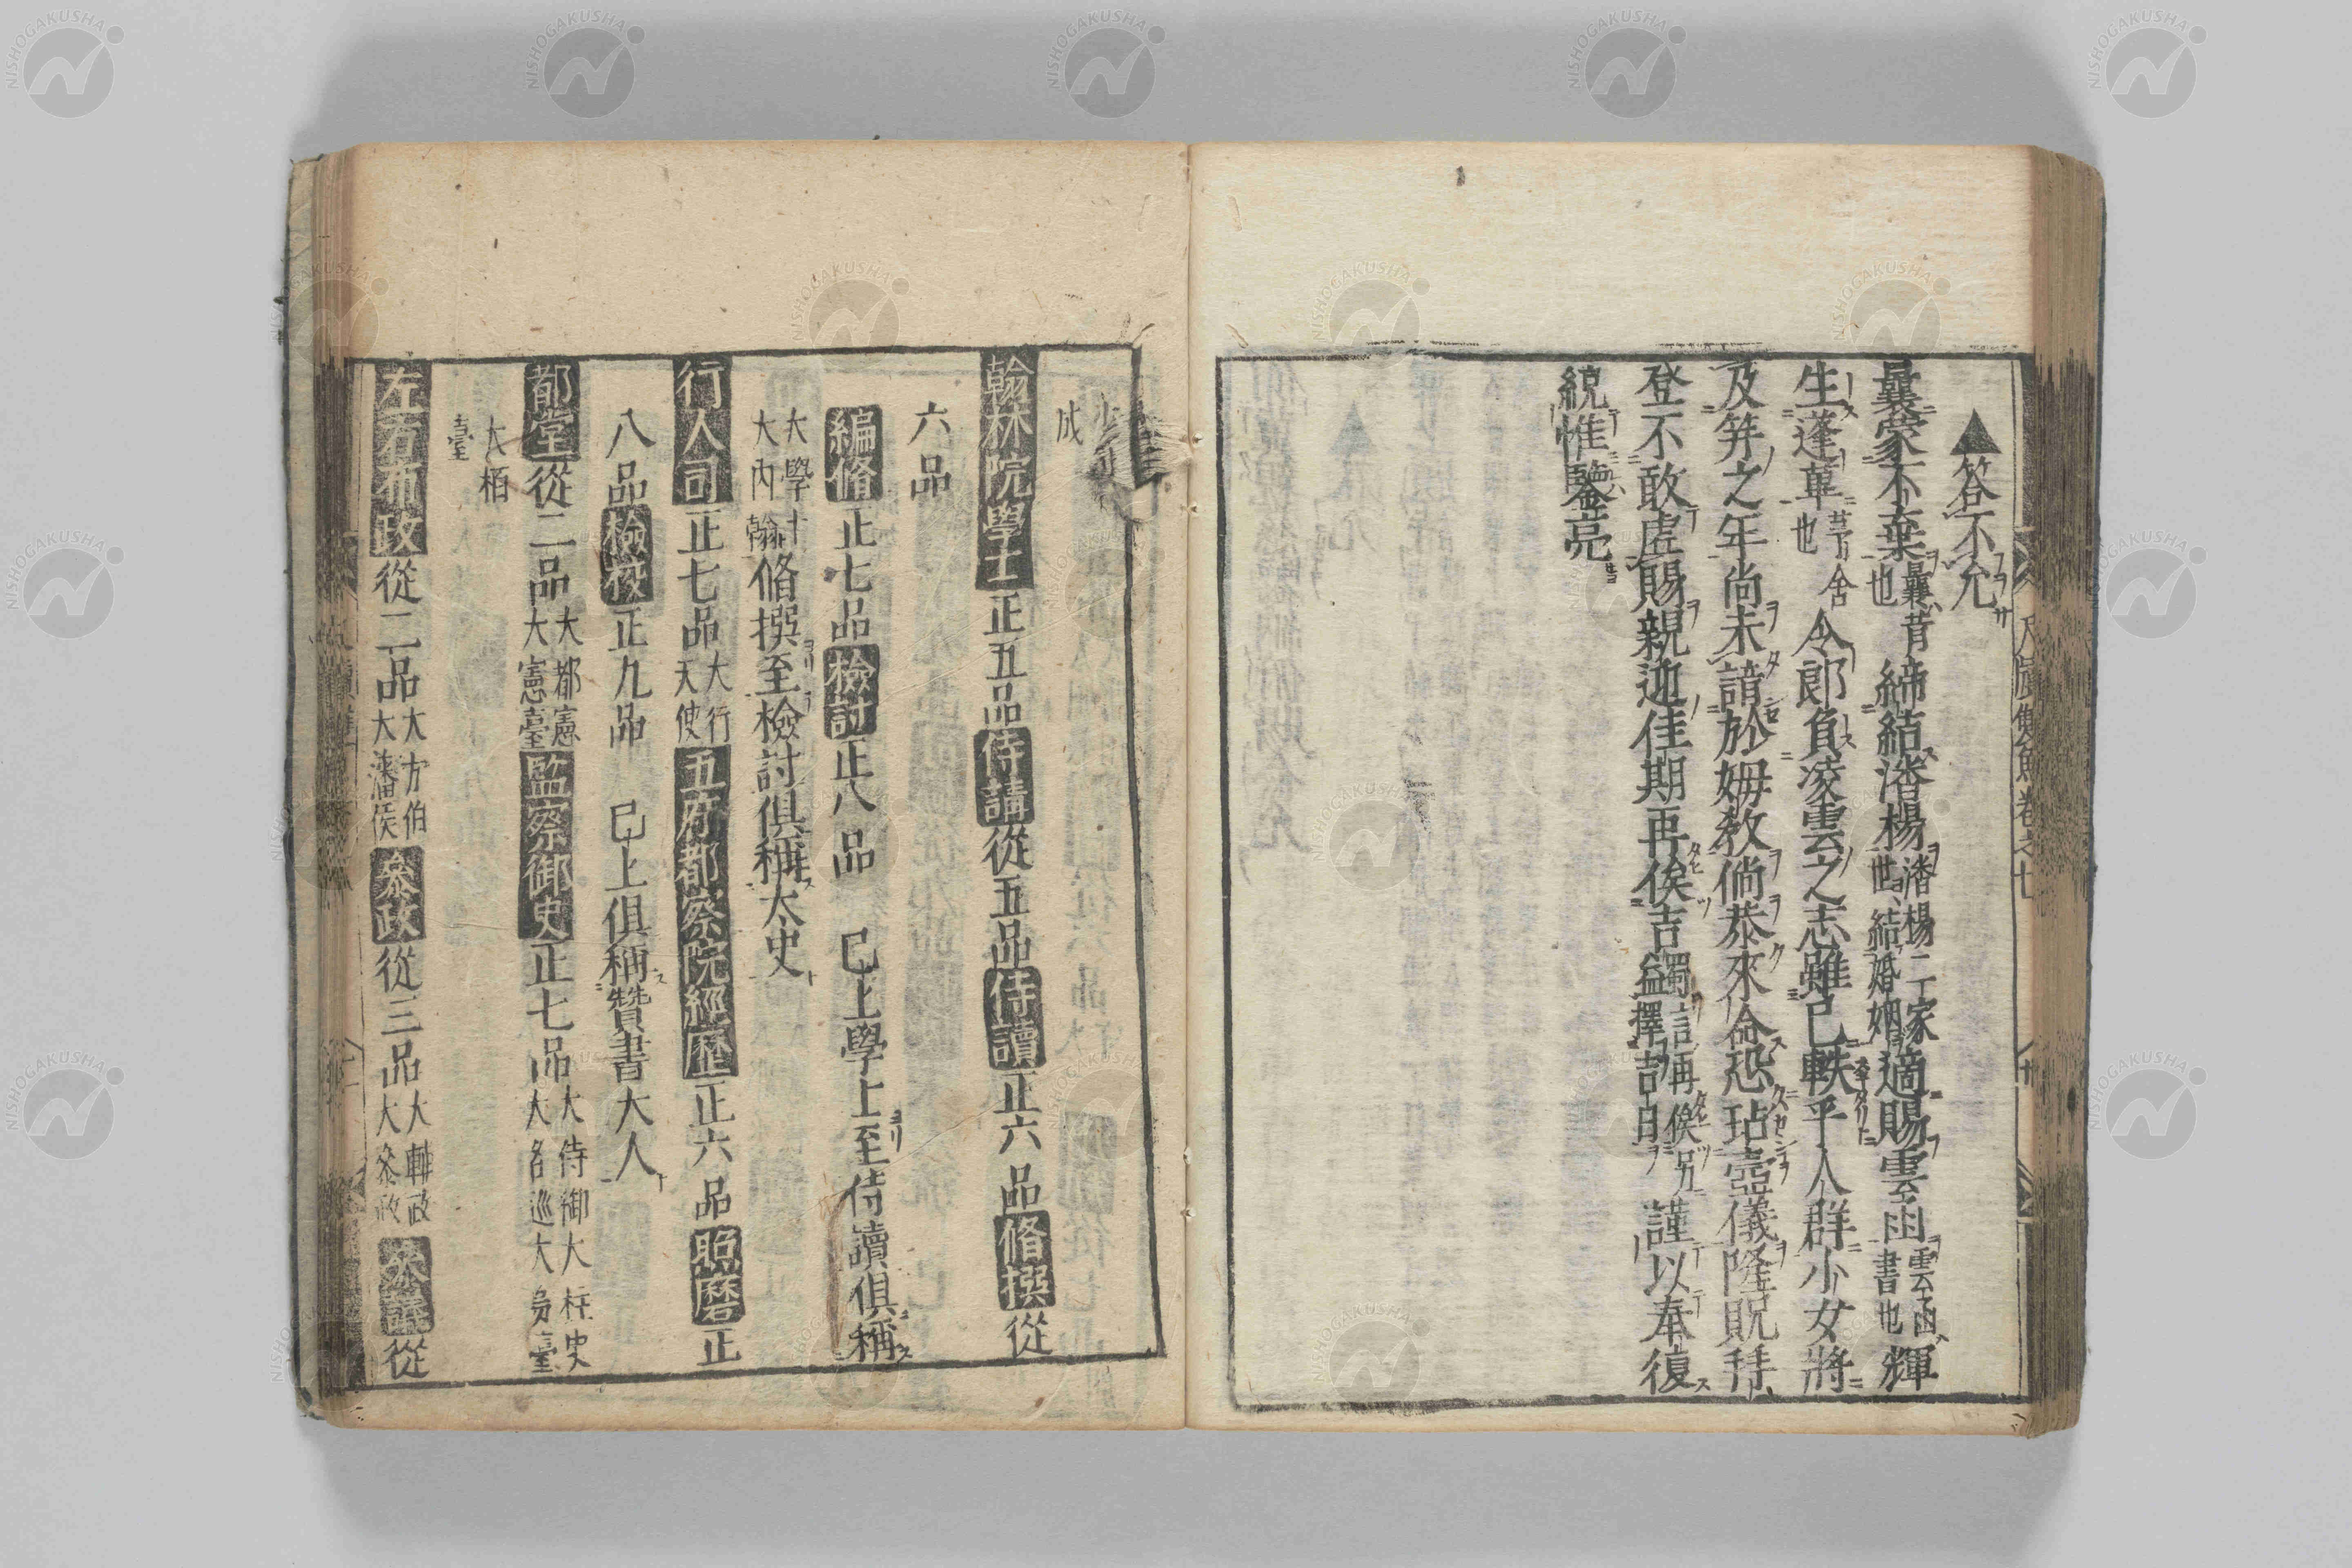 ▲答不允
曩蒙不棄曩昔也締結潘楊潘楊二家世結婚姻適賜雲函雲函書也輝
生蓬蓽舍也令郎負凌雲之志雖已軼乎人群少女將
及笄之年尚未諳於姆教倘恭來命恐玷壼儀隆貺拜
登不敢虛賜親迎佳期再俟吉蠲言再俟另擇吉日謹以奉復
統惟鑒亮
尺牘雙魚卷之七
成
翰林院學士正五品侍講從五品侍讀正六品脩撰從
六品
編脩正七品檢討正八品 已上學上至侍讀俱稱
大學士大內翰脩撰至檢討俱稱太史
行人司正七品大行天使五府都察院經歷正六品照磨正
八品檢校正九品 已上俱稱贊書大人
都堂從二品大都憲大憲臺監察御史正七品大侍御大柱史大名巡大烏臺
大栢臺
左右布政從二品大方伯大藩侯叅政從三品大輔政大叅政叅議從
NISHOGAKUSHA